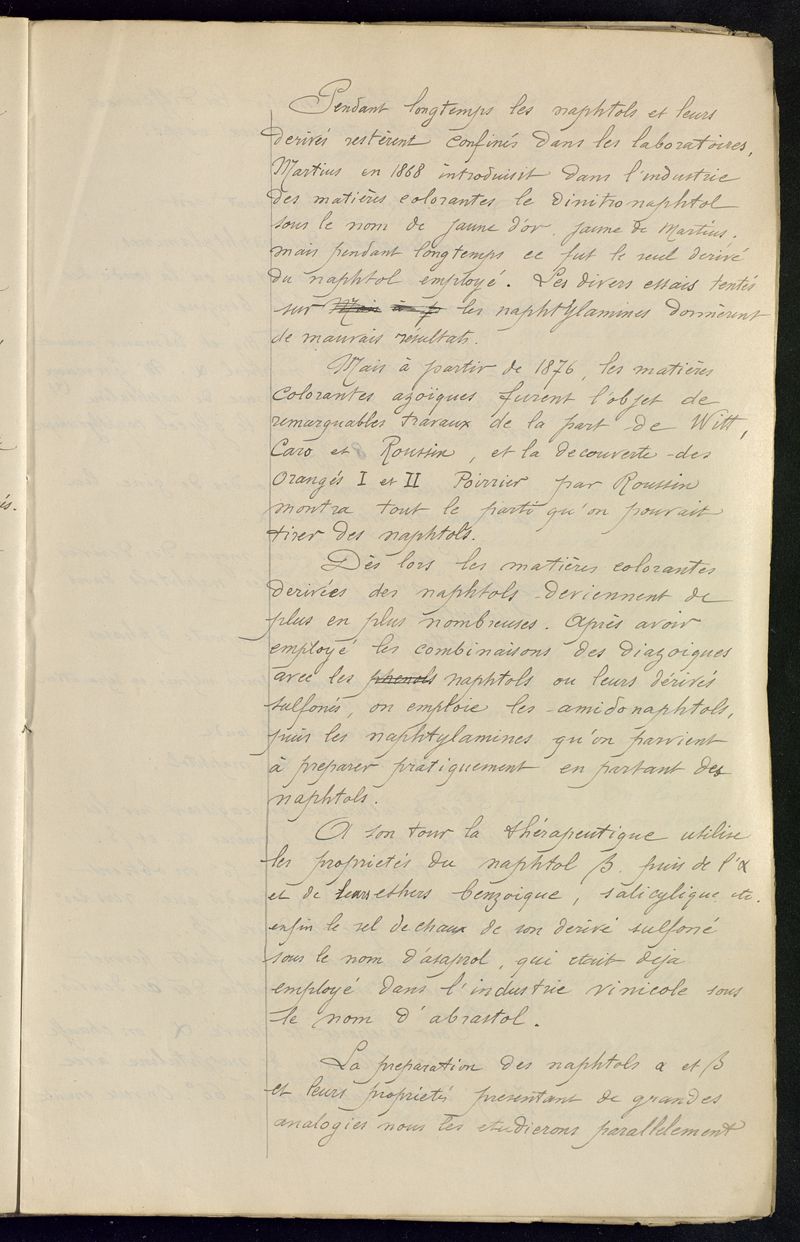 Pendant longtemps les naphtols et leurs
derivés restèrent confinés dans les laboratoires,
Martius en 1868 introduisit dans l'industrie
des matières colorantes le dinitronaphtol
sous le nom de jaune d'or, jaune de Martius.
mais pendant longtemps ce fut le seul dérivé
du naphtol employé. Les divers essais tentés
sur Mais à p les naphtylamines donnèrent
de mauvais résultats.
Mais à partir de 1876, les matières
colorantes azoïques furent l'objet de
remarquables travaux de la part de Witt,
Caro et Roussin, et la decouverte des
Orangés I et II Poirrier par Roussin
montra tout le parti qu'on pouvait
tirer des naphtols.
Dès lors les matières colorantes
derivées des naphtols deviennent de
plus en plus nombreuses. Après avoir
employé les combinaisons des diazoiques
avec les phenols naphtols ou leurs dérivés
sulfonés, on emploie les amidonaphtols,
puis les naphtylamines qu'on parvient
à preparer pratiquement en partant des
naphtols.
A son tour la thérapeutique utilise
les proprietés du naphtol β. puis de l'α
et de leurs ethers benzoique, salicylique etc.
enfin le sel de chaux de son derivé sulfoné
sous le nom d'asaprol, qui etait deja
employé dans l'industrie vinicole sous
le nom d'abrastol.
La preparation des naphtols α et β
et leurs proprietés presentant de grandes
analogies nous les etudierons parallelement
és.